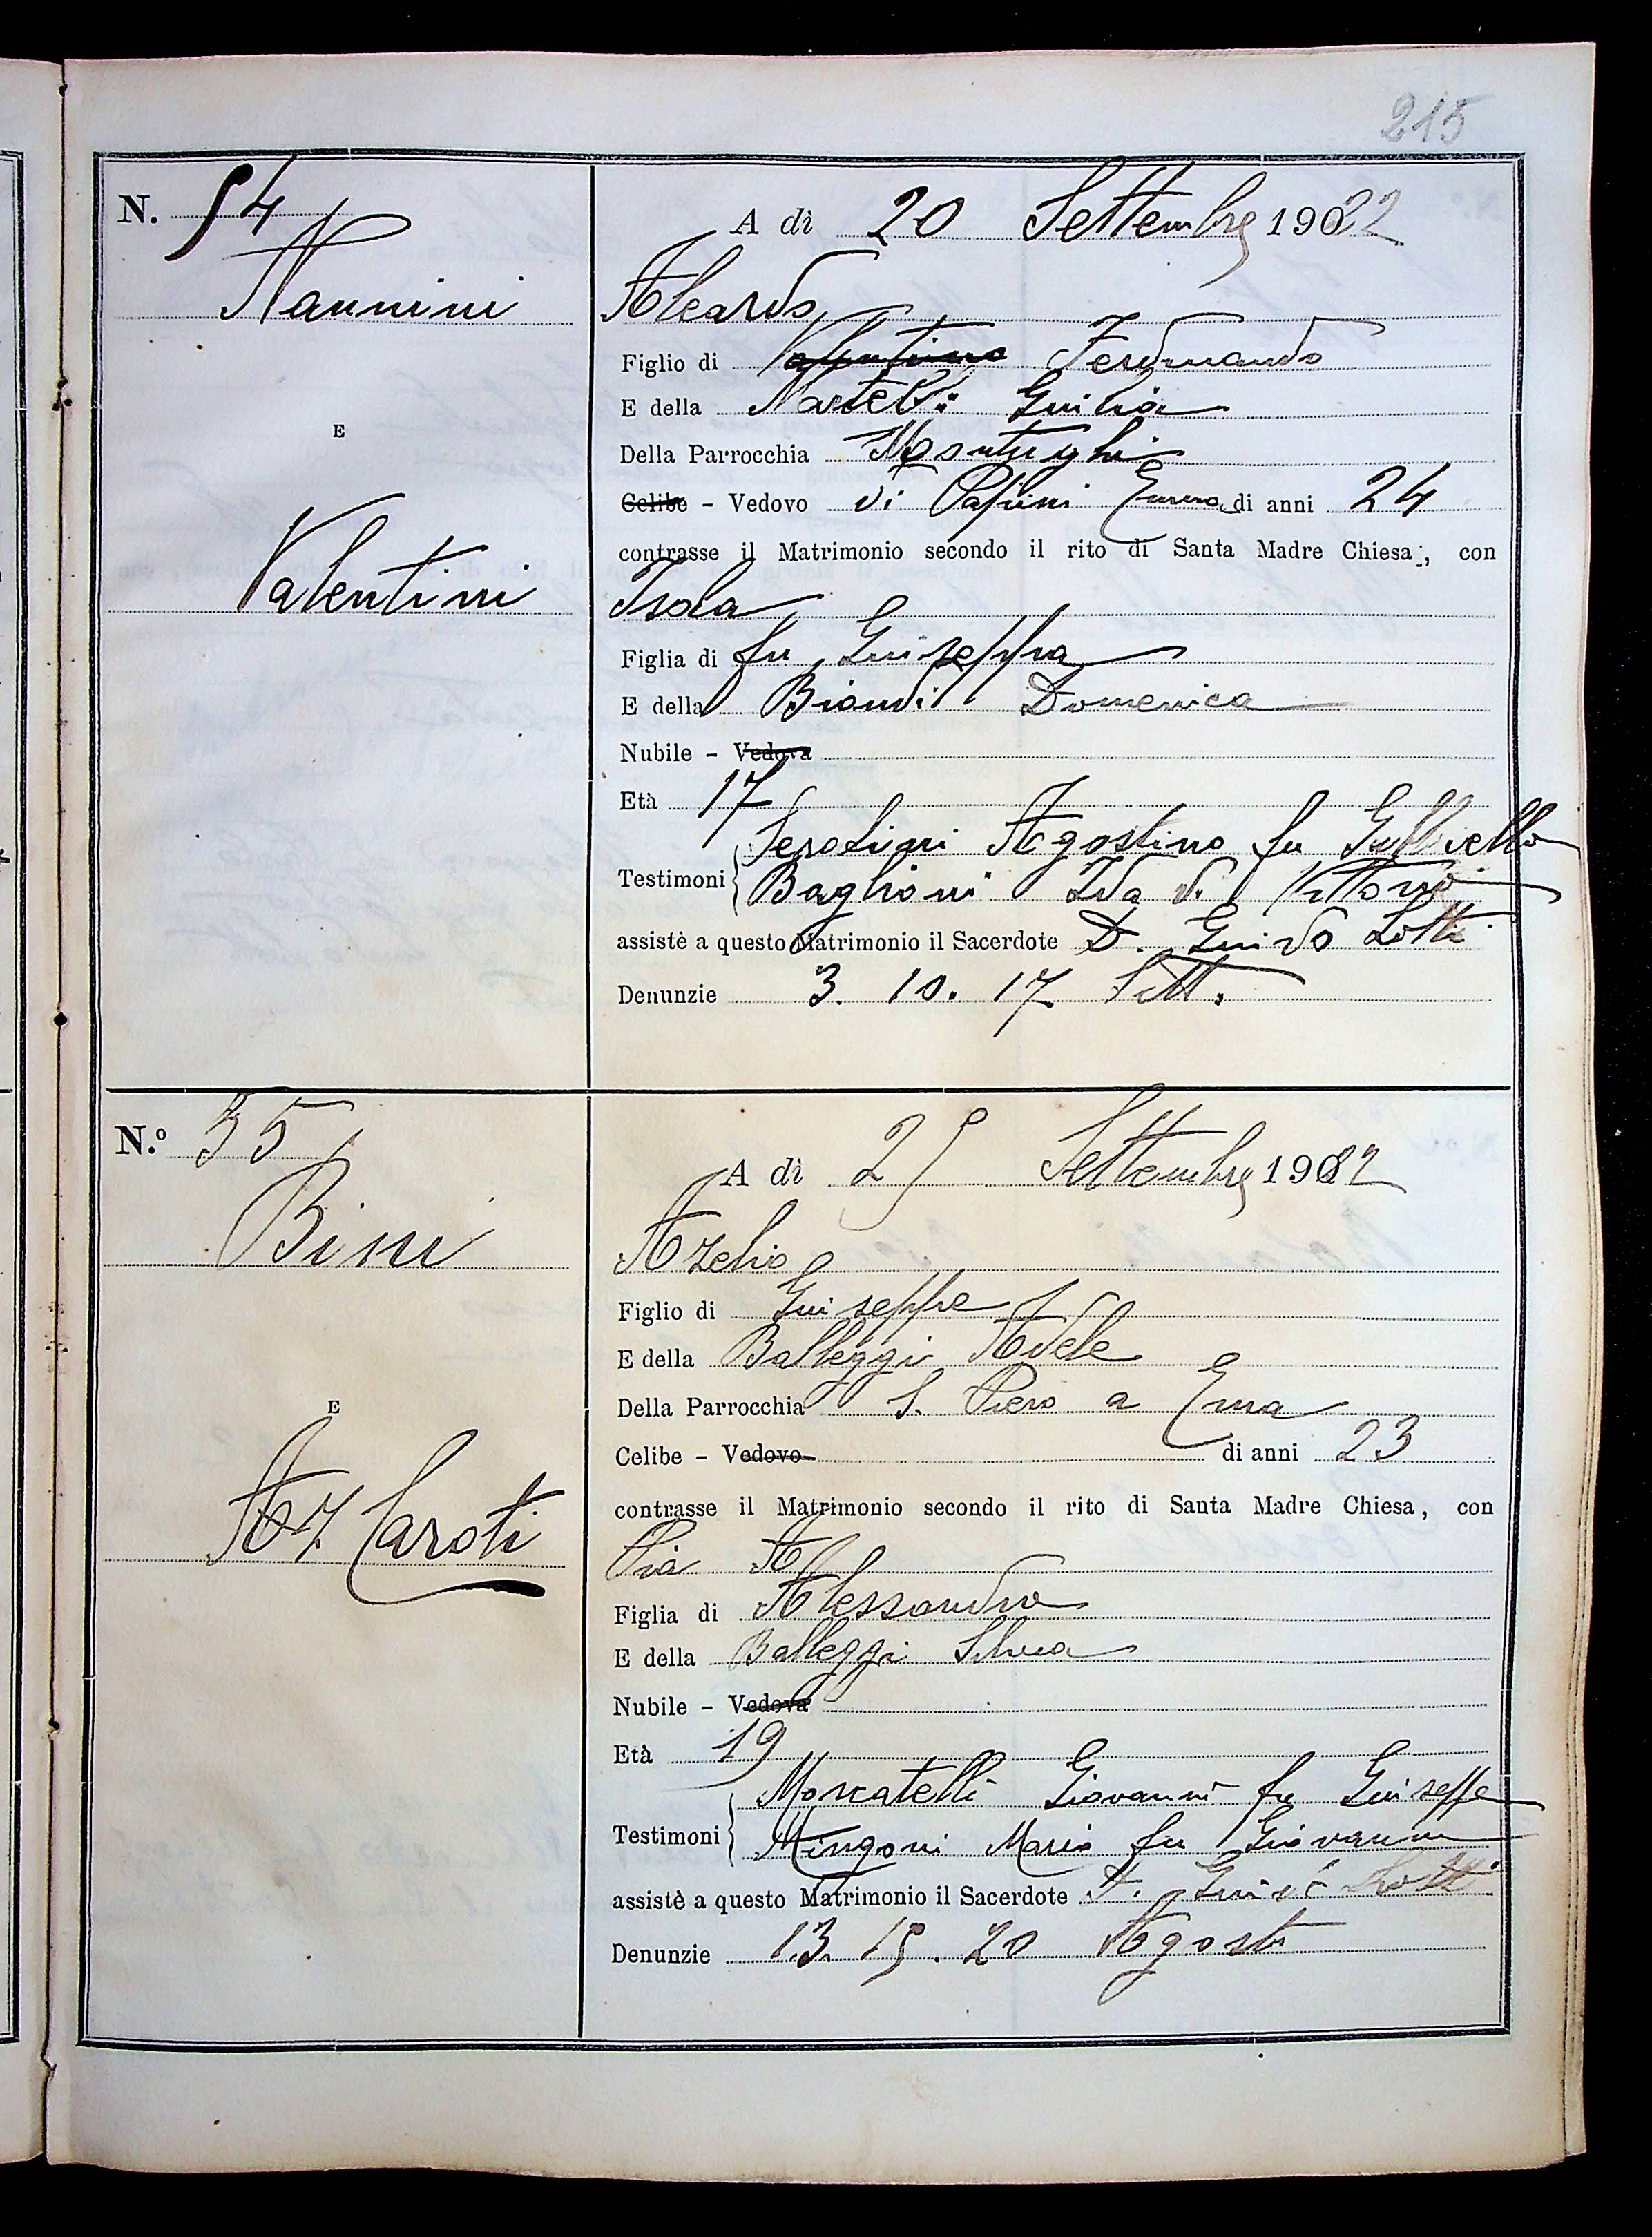 215
N. 54
A dì 20 Settembre 1922
Nannini
Aleardo
Figlio di Valentino Ferdinando
E della Natelli Giulia
E
Della Parrocchia Montughi
Celibe - Vedovo di Papini Emma di anni 24
contrasse il Matrimonio secondo il rito di Santa Madre Chiesa, con
Valentini
Isola
Figlia di fu Giuseppe
E della Biondi Domenica
Nubile - Vedova
Età 17
Serotini Agostino fu
Testimoni
Baglioni Ida di Vittorio
assistè a questo Matrimonio il Sacerdote D. Guido Lotti
Denunzie 3. 10. 17 Sett.
N.º 55
A dì 25 Settembre 1922
Bini
Azelio
Figlio di Giuseppe
E della Balleggi Adele
Della Parrocchia S. Piero a Ema
E
Celibe - Vedovo di anni 23
contrasse il Matrimonio secondo il rito di Santa Madre Chiesa, con
Caroti
Pia
Figlia di Alessandro
E della Balleggi Silvia
Nubile - Vedova
Età 19
Moscatelli Giovanni fu Giuseppe
Testimoni
Mingoni Mario fu Giovanni
assistè a questo Matrimonio il Sacerdote D. Guido Lotti
Denunzie 13. 15. 20 Agosto